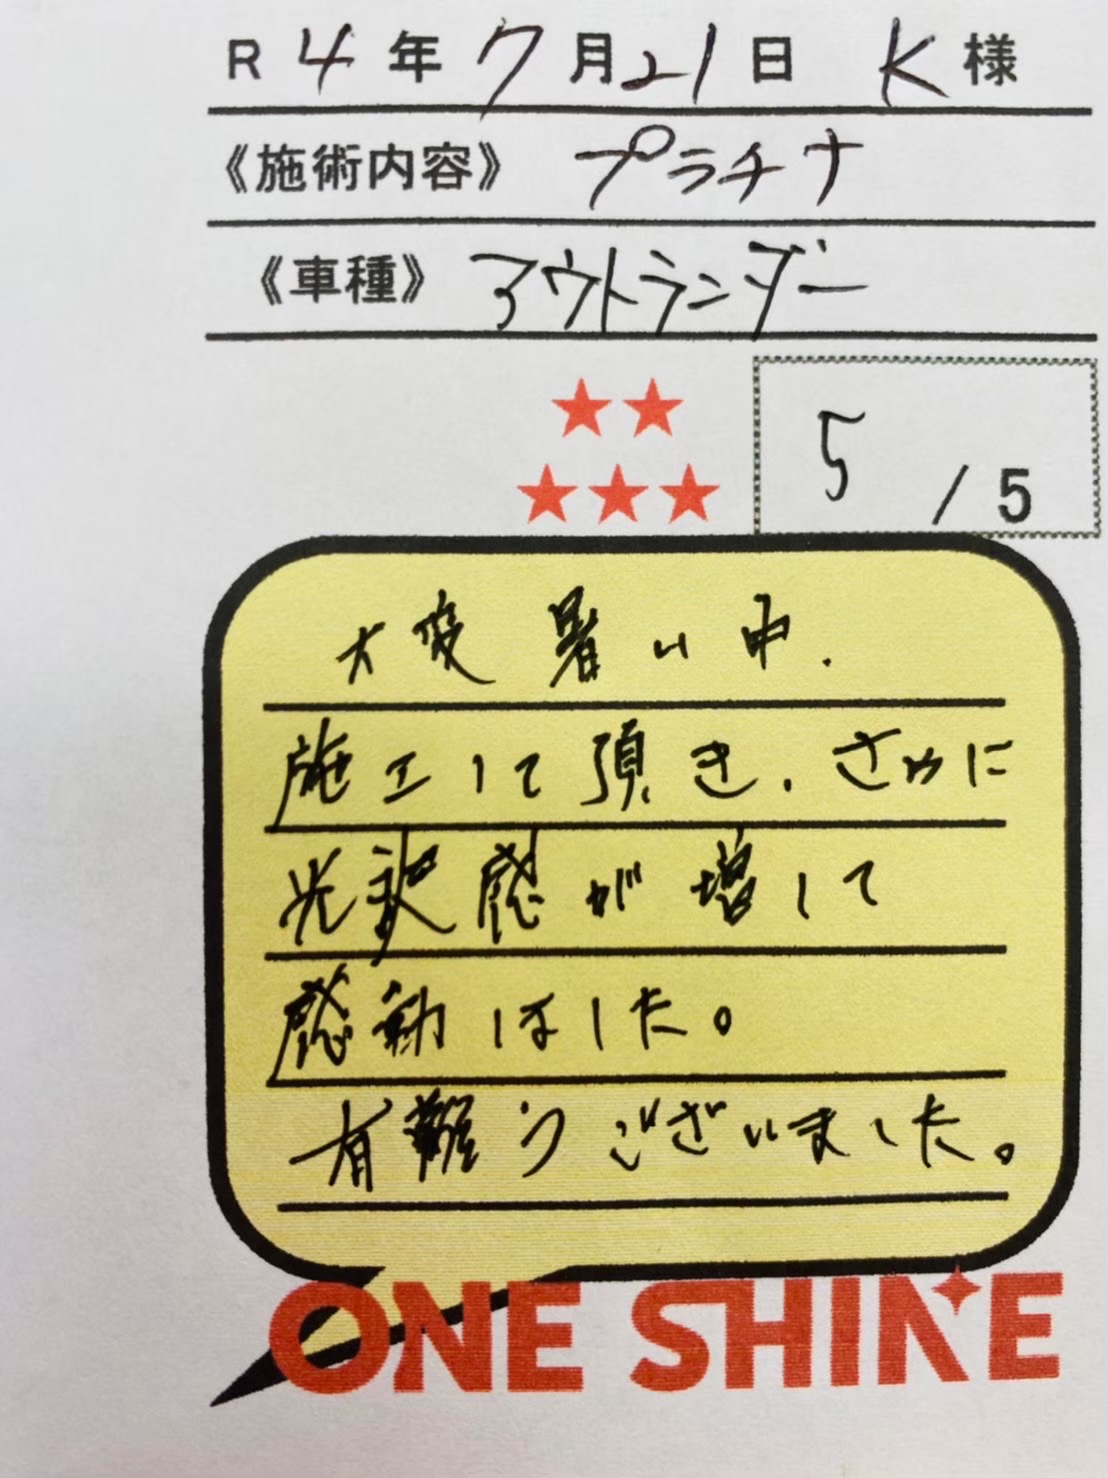 R4年7月21日 K様
《施術内容》 プラチナ
《車種》 アウトランダー
5/5
大変暑い中、
施工して頂き、さらに
光沢感が増して
感動しました。
有難うございました。
ONE SHINE